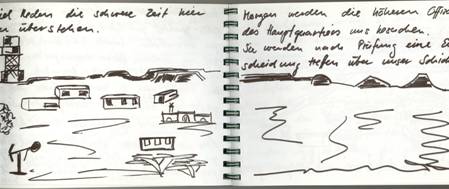 viel Reden die schwere Zeit hier
überstehen.
Morgen werden die höheren Offiz
des Hauptquartiers uns besuchen.
Sie werden nach Prüfung eine E
scheidung treffen über unser Schick